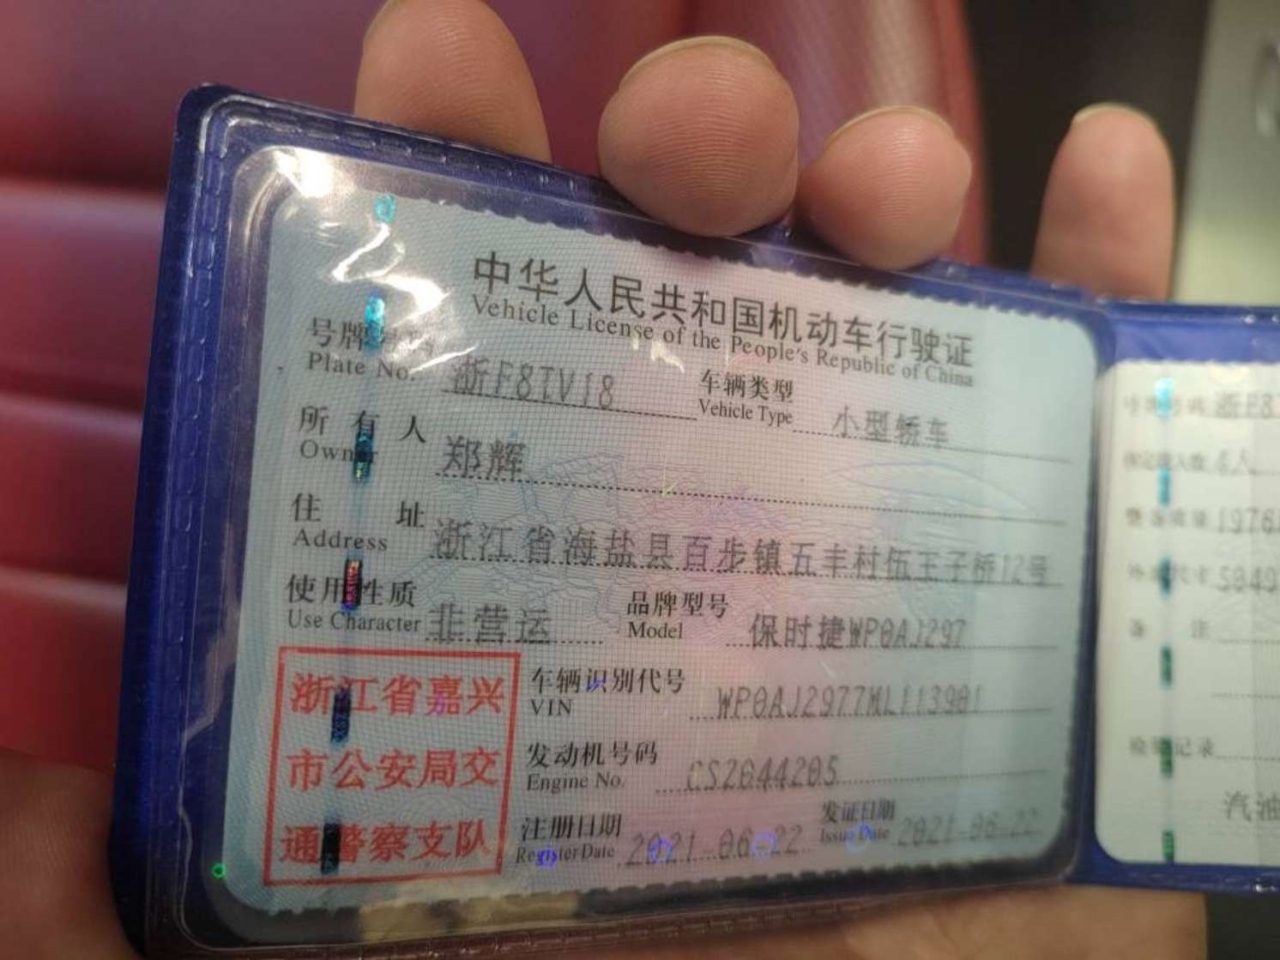 中华人民共和国机动车行驶证
Vehicle License of the People's Republic of China
号牌号码 浙F8TV18 车辆类型 小型轿车
Plate No. Vehicle Type
所有人 郑辉
Owner
住址 浙江省海盐县百步镇五丰村伍王子桥12号
Address
使用性质 非营运 品牌型号 保时捷WP0AJ297
Use Character Model
浙江省嘉兴
市公安局交
通警察支队
车辆识别代号 WP0AJ2977ML113901
VIN
发动机号码 CS2644205
Engine No.
注册日期 2021-06-22 发证日期 2021-06-22
Register Date Issue Date
浙F8
检验记录
汽油